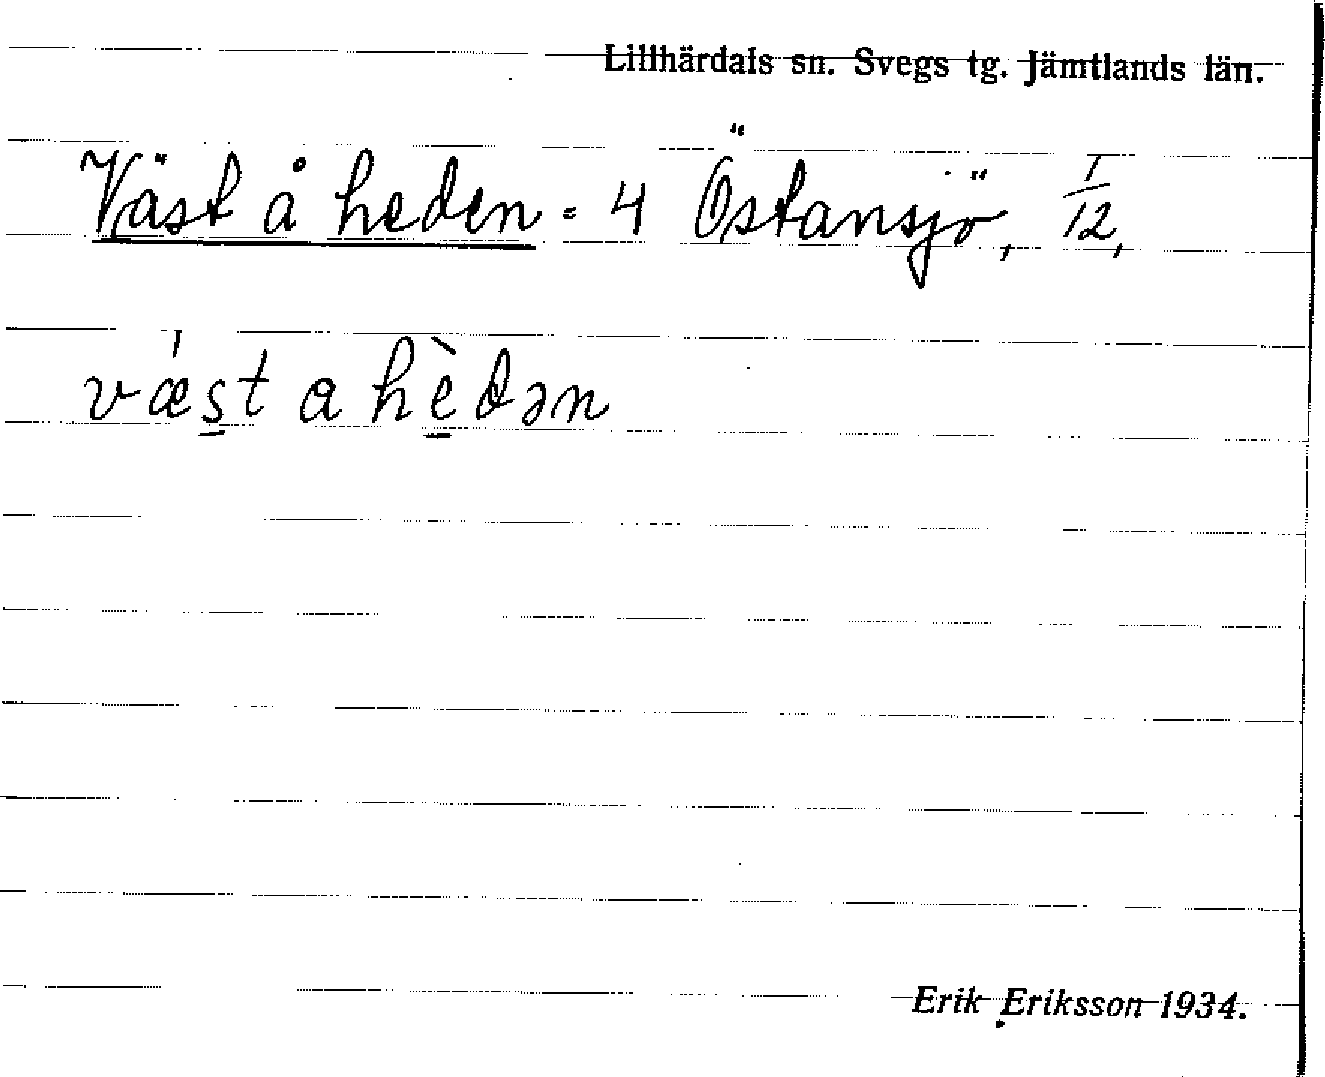 Lillhärdals sn. Svegs tg. Jämtlands län.
Väst å heden = 4 Östansjö, 1/12,
væ̀st a hèdən
Erik Eriksson 1934.